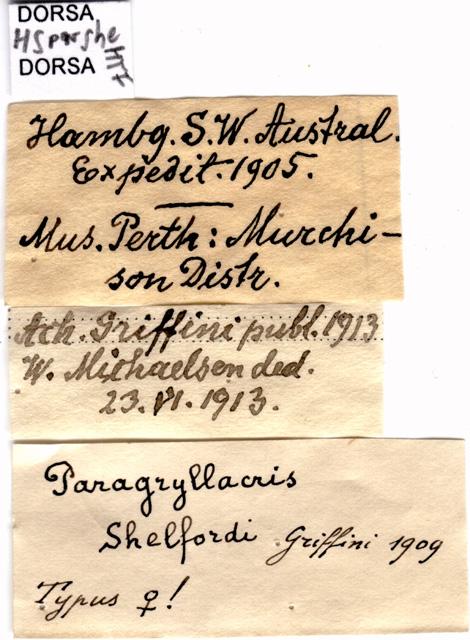 DORSA
HSparshe
HTT
DORSA
Hambg. S.W. Austral.
Expedit. 1905.
Mus. Perth: Murchi-
son Distr.
Ach. Griffini publ. 1913
W. Michaelsen ded.
23. VI. 1913.
Paragryllacris
Shelfordi Griffini 1909
Typus ♀!